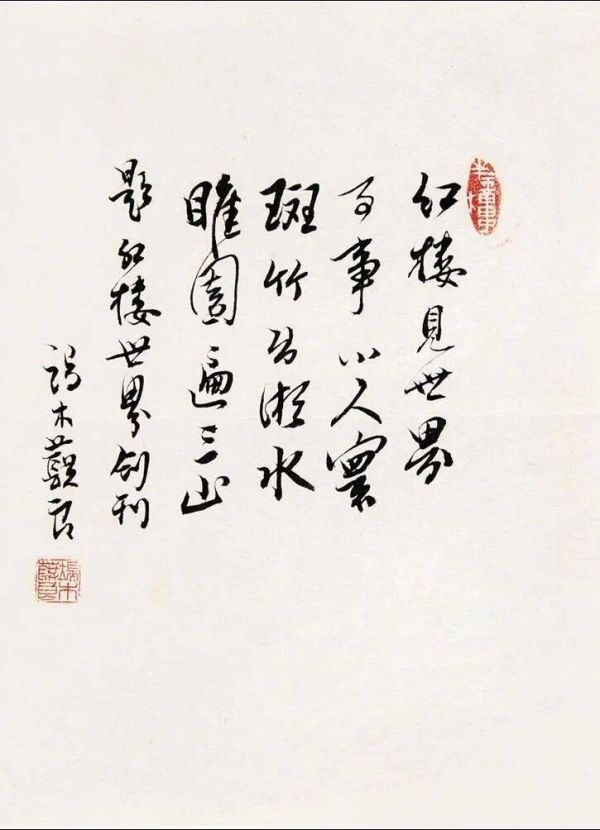 红楼見世界
事小人寰
斑竹湘水
睢園遍三山
题红楼世界创刊
端木蕻良
端木蕻良